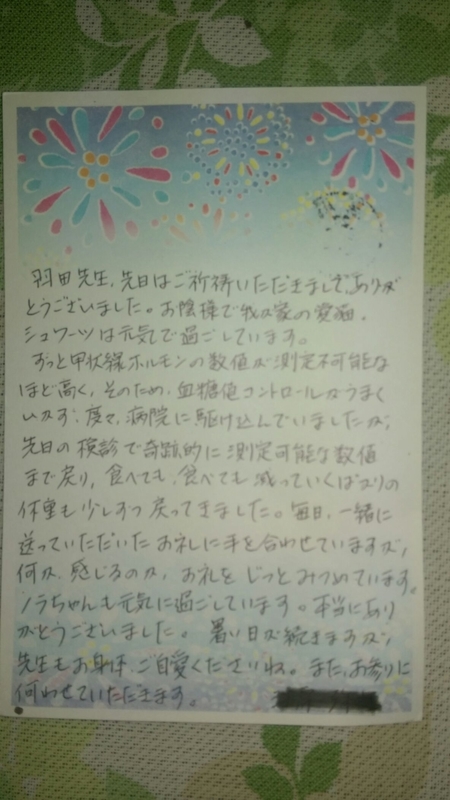 羽田先生、先日はご祈祷いただきまして、ありが
とうございました。お陰様で我が家の愛猫、
シュワーツは元気で過ごしています。
ずっと甲状線ホルモンの数値が測定不可能な
ほど高く、そのため、血糖値コントロールがうまく
いかず、度々、病院に駆け込んでいましたが、
先日の検診で奇跡的に測定可能な数値
まで戻り、食べても、食べても減っていくばかりの
体重も少しずつ戻ってきました。毎日、一緒に
送っていただいたお札に手を合わせていますが、
何か、感じるのか、お札をじっとみつめています。
ソラちゃんも元気に過ごしています。本当にあり
がとうございました。暑い日が続きますが、
先生もお身体、ご自愛くださいね。また、お参りに
伺わせていただきます。